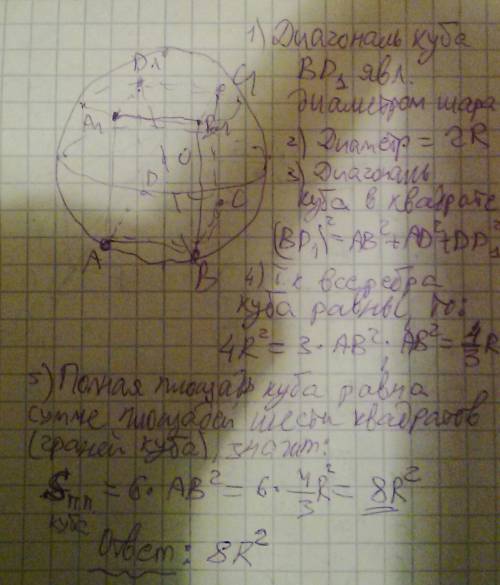 1) Диагональ куба
BD₁ явл.
диаметром шара
2) Диаметр = 2R
3) Диагональ
куба в квадрате
(BD₁)² = AB² + AD² + DD₁²
4) Т.к все ребра
куба равны, то:
4R² = 3 · AB², AB² = 4/3 R
5) Полная площадь куба равна
сумме площадей шести квадратов
(граней куба), значит:
Sп.п. куба = 6 · AB² = 6 · 4/3 R² = 8R²
Ответ: 8R²
D₁
C₁
A₁
B₁
O
D
C
A
B